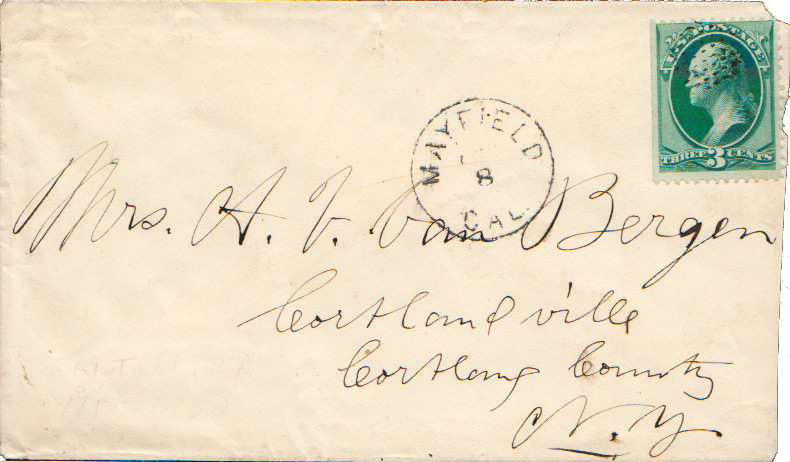 U.S. POSTAGE
THREE 3 CENTS
MAYFIELD
8
CAL.
Mrs. A. V. Van Bergen
Cortlandville
Cortland County
N.Y.